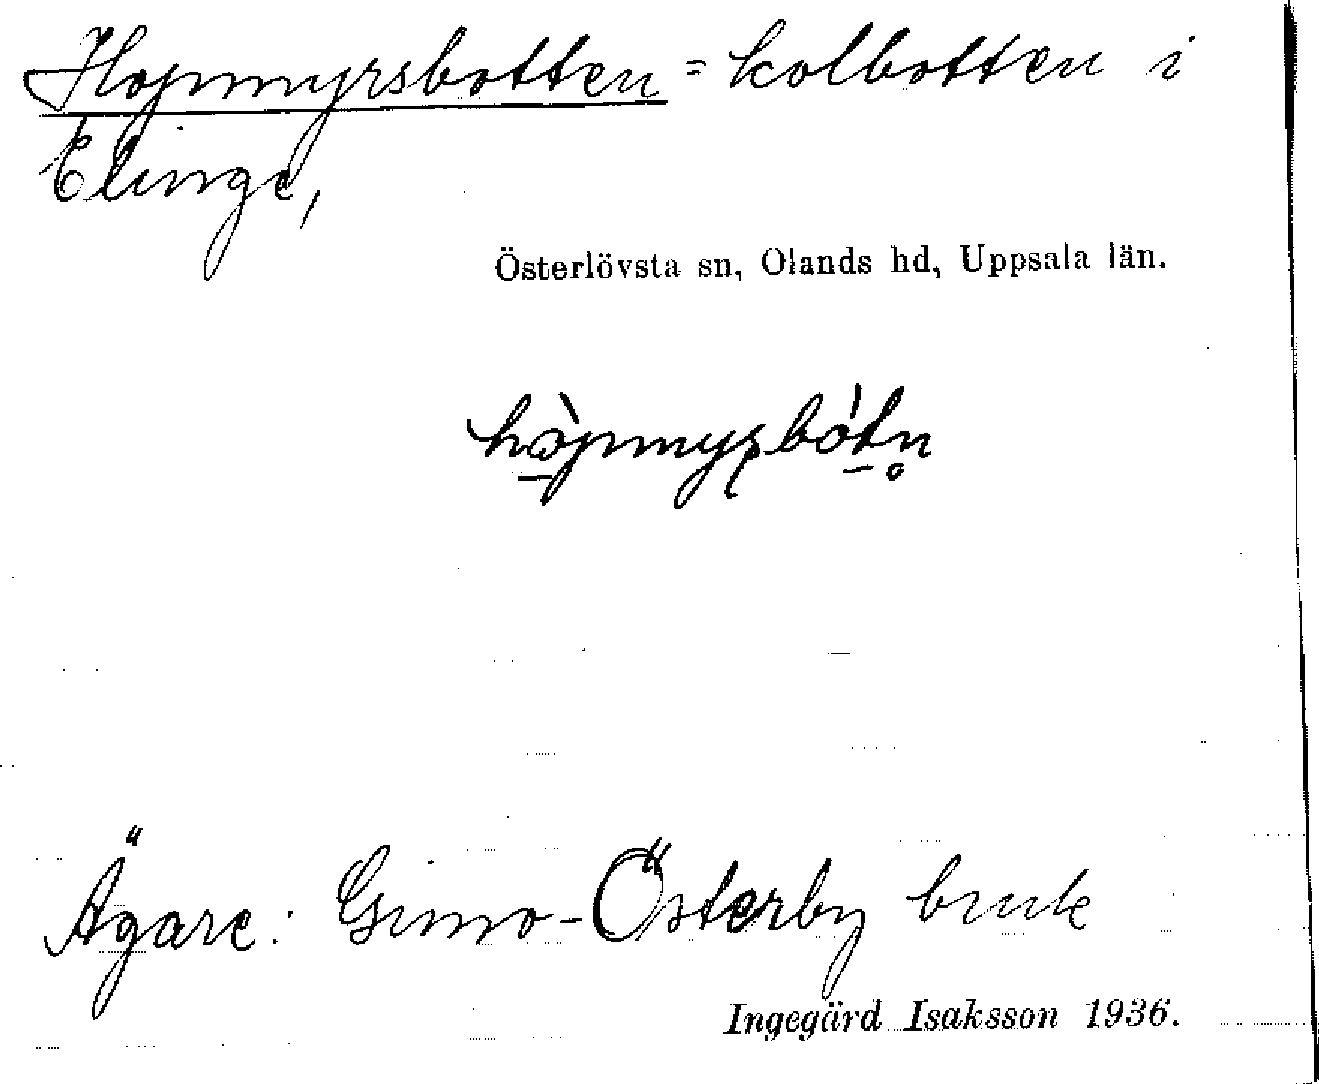 Hopmyrsbotten = kolbotten i
Elinge,
Österlövsta sn, Olands hd, Uppsala län.
Ägare: Gimo-Österby bruk
Ingegärd Isaksson 1936.